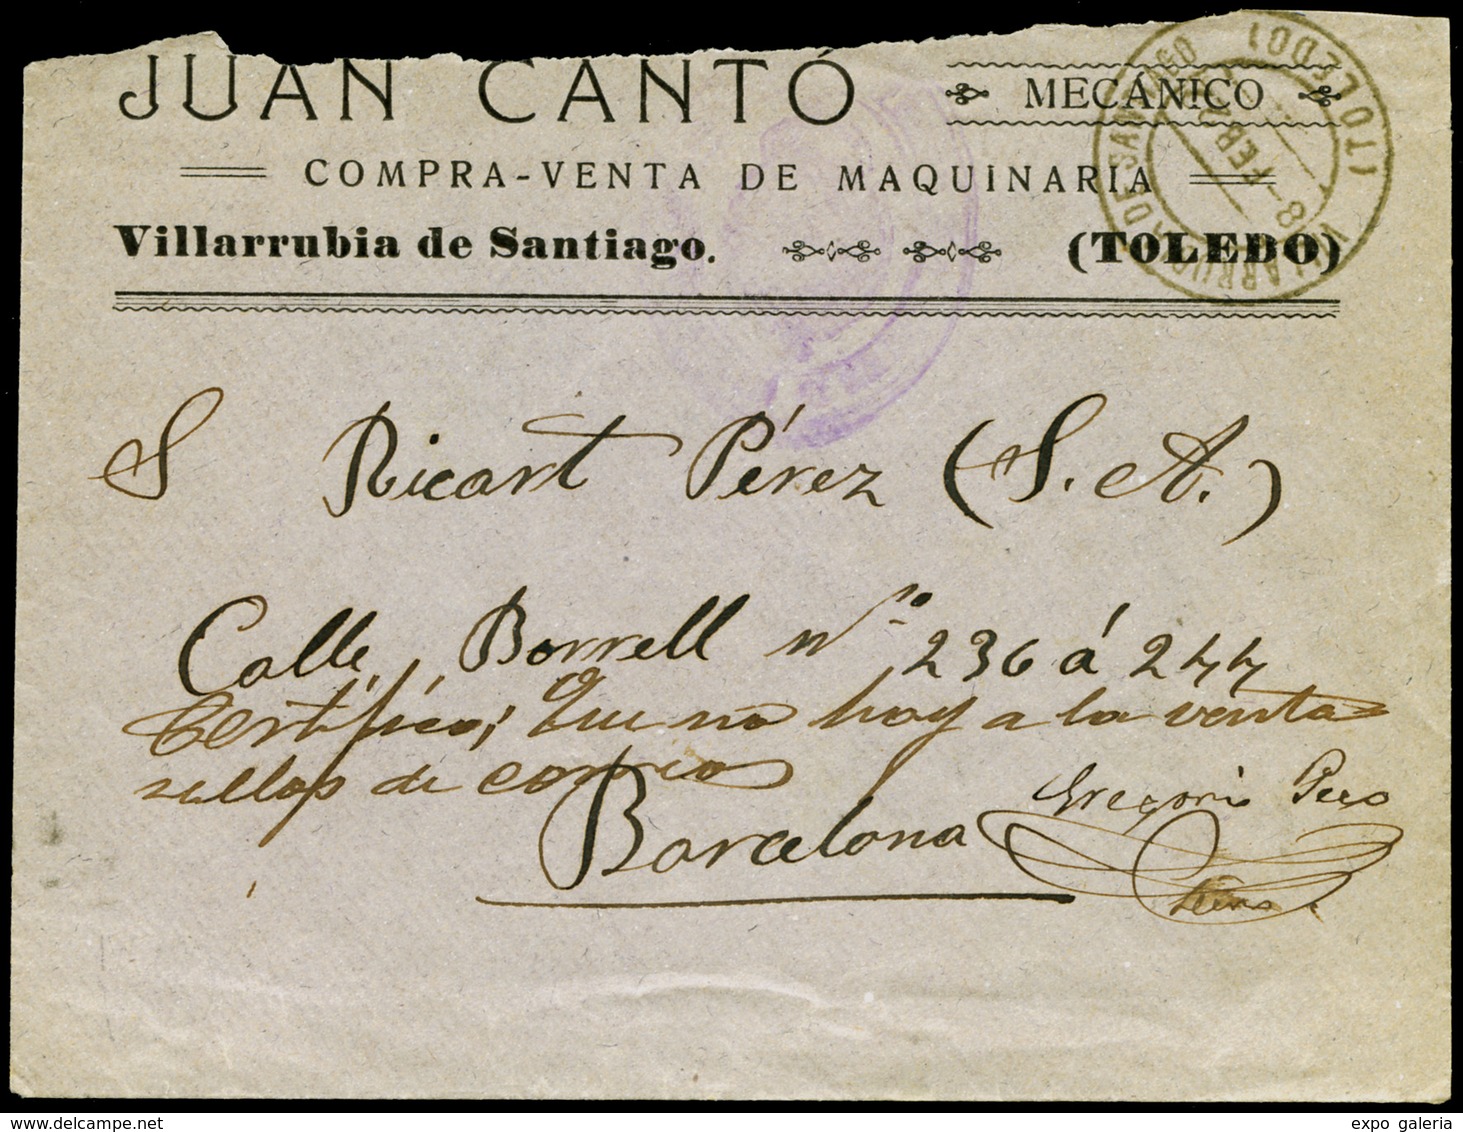 JUAN CANTÓ MECÁNICO
COMPRA-VENTA DE MAQUINARIA
Villarrubia de Santiago. (TOLEDO)
VILLARRUBIA DE SANTIAGO (TOLEDO)
8-FEB
S Ricart Pérez (S. A.)
Calle, Borrell nº 236 á 244
Certífico; Que no hay a la venta
sellos de correos
Gregorio
Barcelona
expo galeria